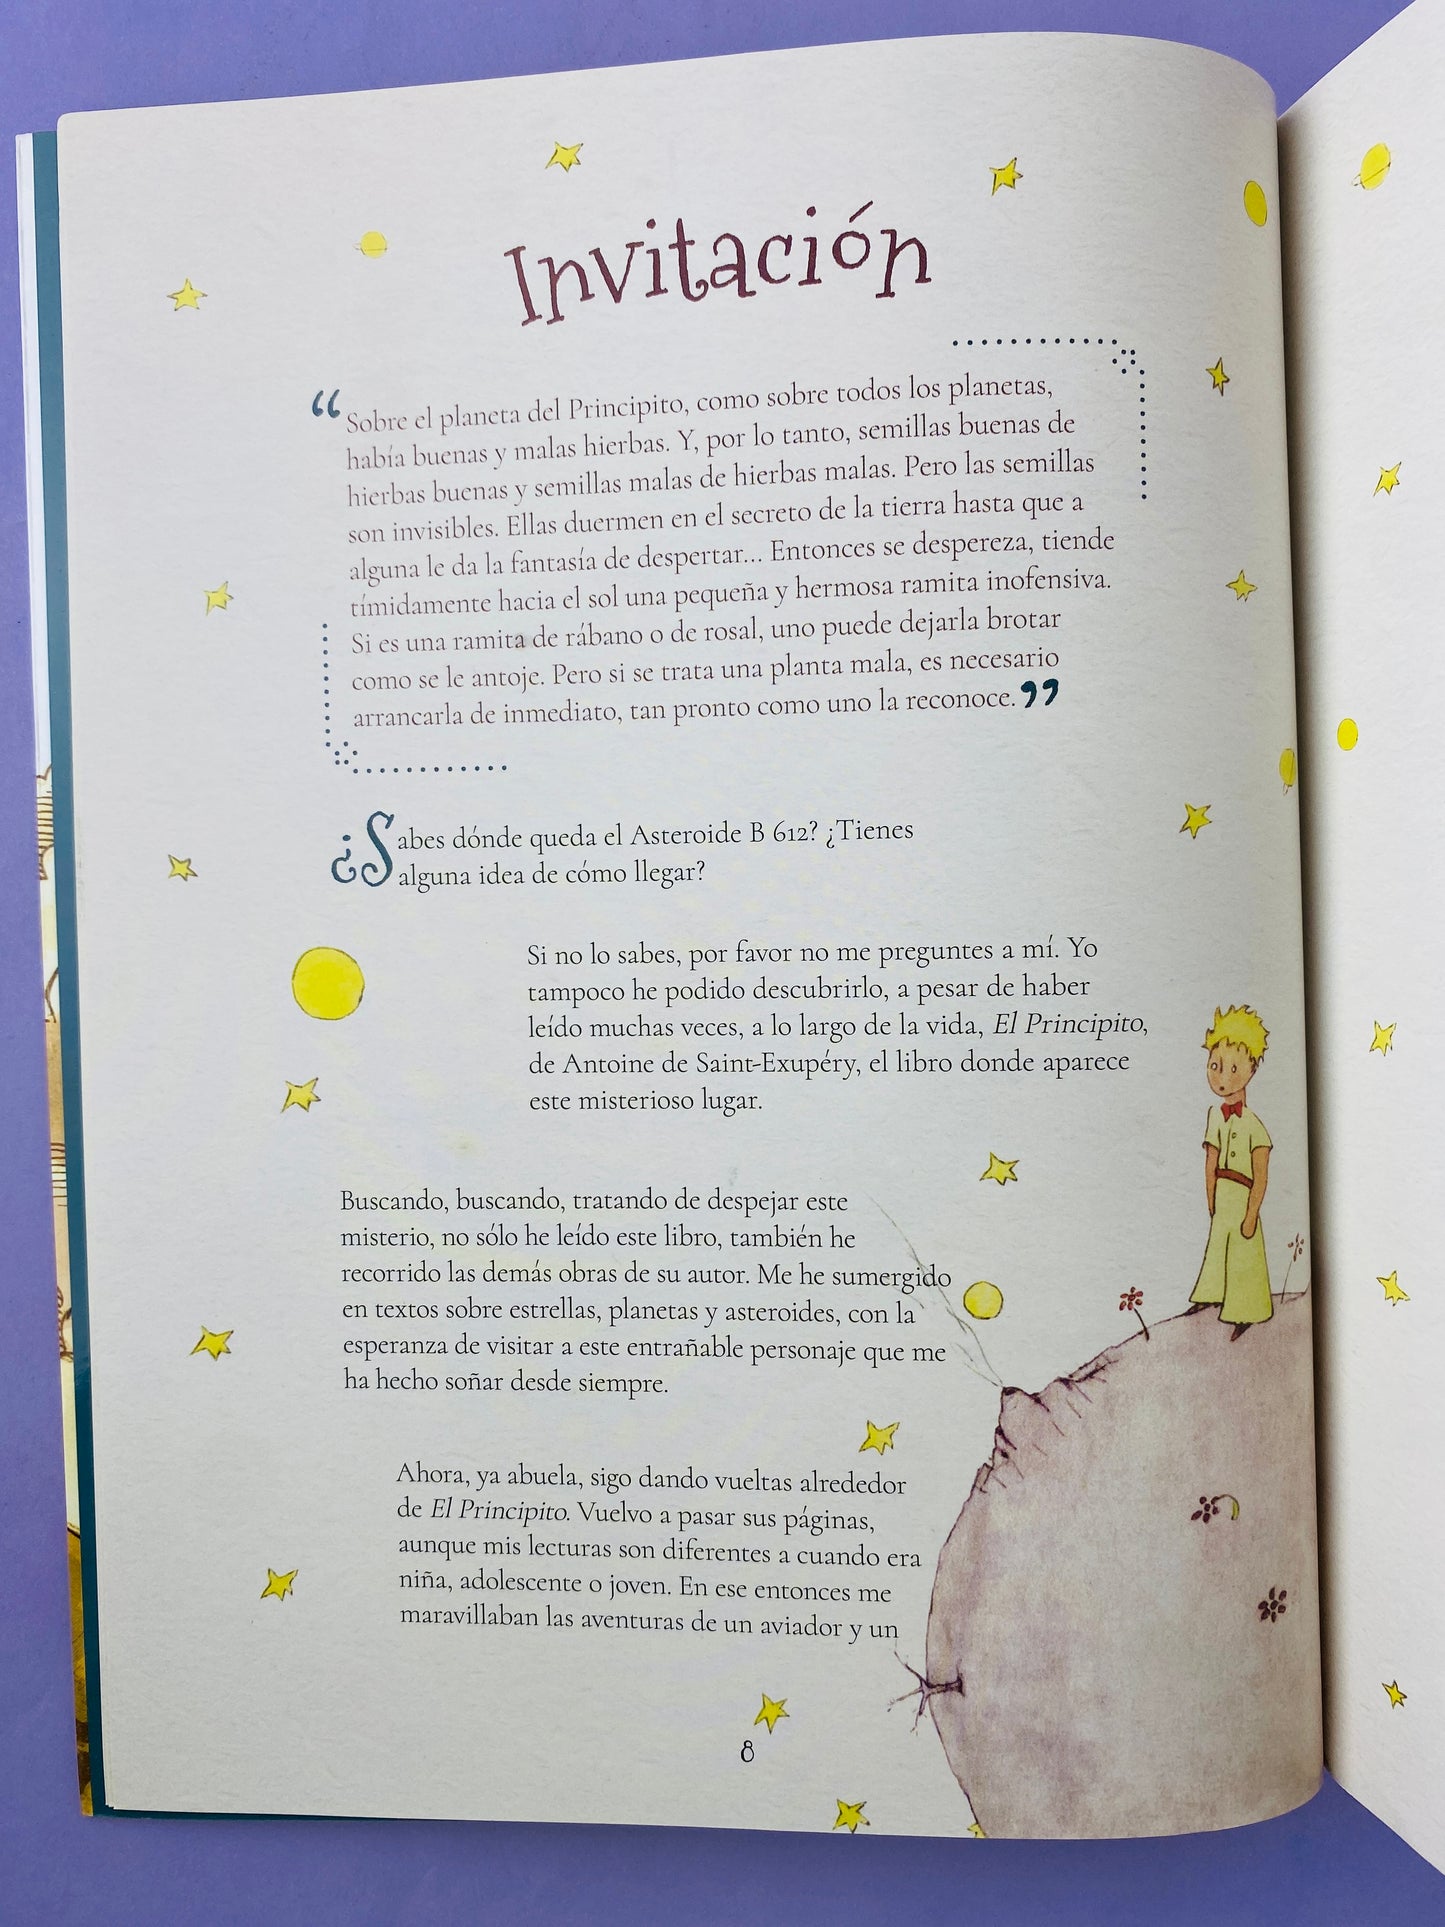 Invitación
“Sobre el planeta del Principito, como sobre todos los planetas,
había buenas y malas hierbas. Y, por lo tanto, semillas buenas de
hierbas buenas y semillas malas de hierbas malas. Pero las semillas
son invisibles. Ellas duermen en el secreto de la tierra hasta que a
alguna le da la fantasía de despertar... Entonces se despereza, tiende
tímidamente hacia el sol una pequeña y hermosa ramita inofensiva.
Si es una ramita de rábano o de rosal, uno puede dejarla brotar
como se le antoje. Pero si se trata una planta mala, es necesario
arrancarla de inmediato, tan pronto como uno la reconoce.”
¿Sabes dónde queda el Asteroide B 612? ¿Tienes
alguna idea de cómo llegar?
Si no lo sabes, por favor no me preguntes a mí. Yo
tampoco he podido descubrirlo, a pesar de haber
leído muchas veces, a lo largo de la vida, El Principito,
de Antoine de Saint-Exupéry, el libro donde aparece
este misterioso lugar.
Buscando, buscando, tratando de despejar este
misterio, no sólo he leído este libro, también he
recorrido las demás obras de su autor. Me he sumergido
en textos sobre estrellas, planetas y asteroides, con la
esperanza de visitar a este entrañable personaje que me
ha hecho soñar desde siempre.
Ahora, ya abuela, sigo dando vueltas alrededor
de El Principito. Vuelvo a pasar sus páginas,
aunque mis lecturas son diferentes a cuando era
niña, adolescente o joven. En ese entonces me
maravillaban las aventuras de un aviador y un
8